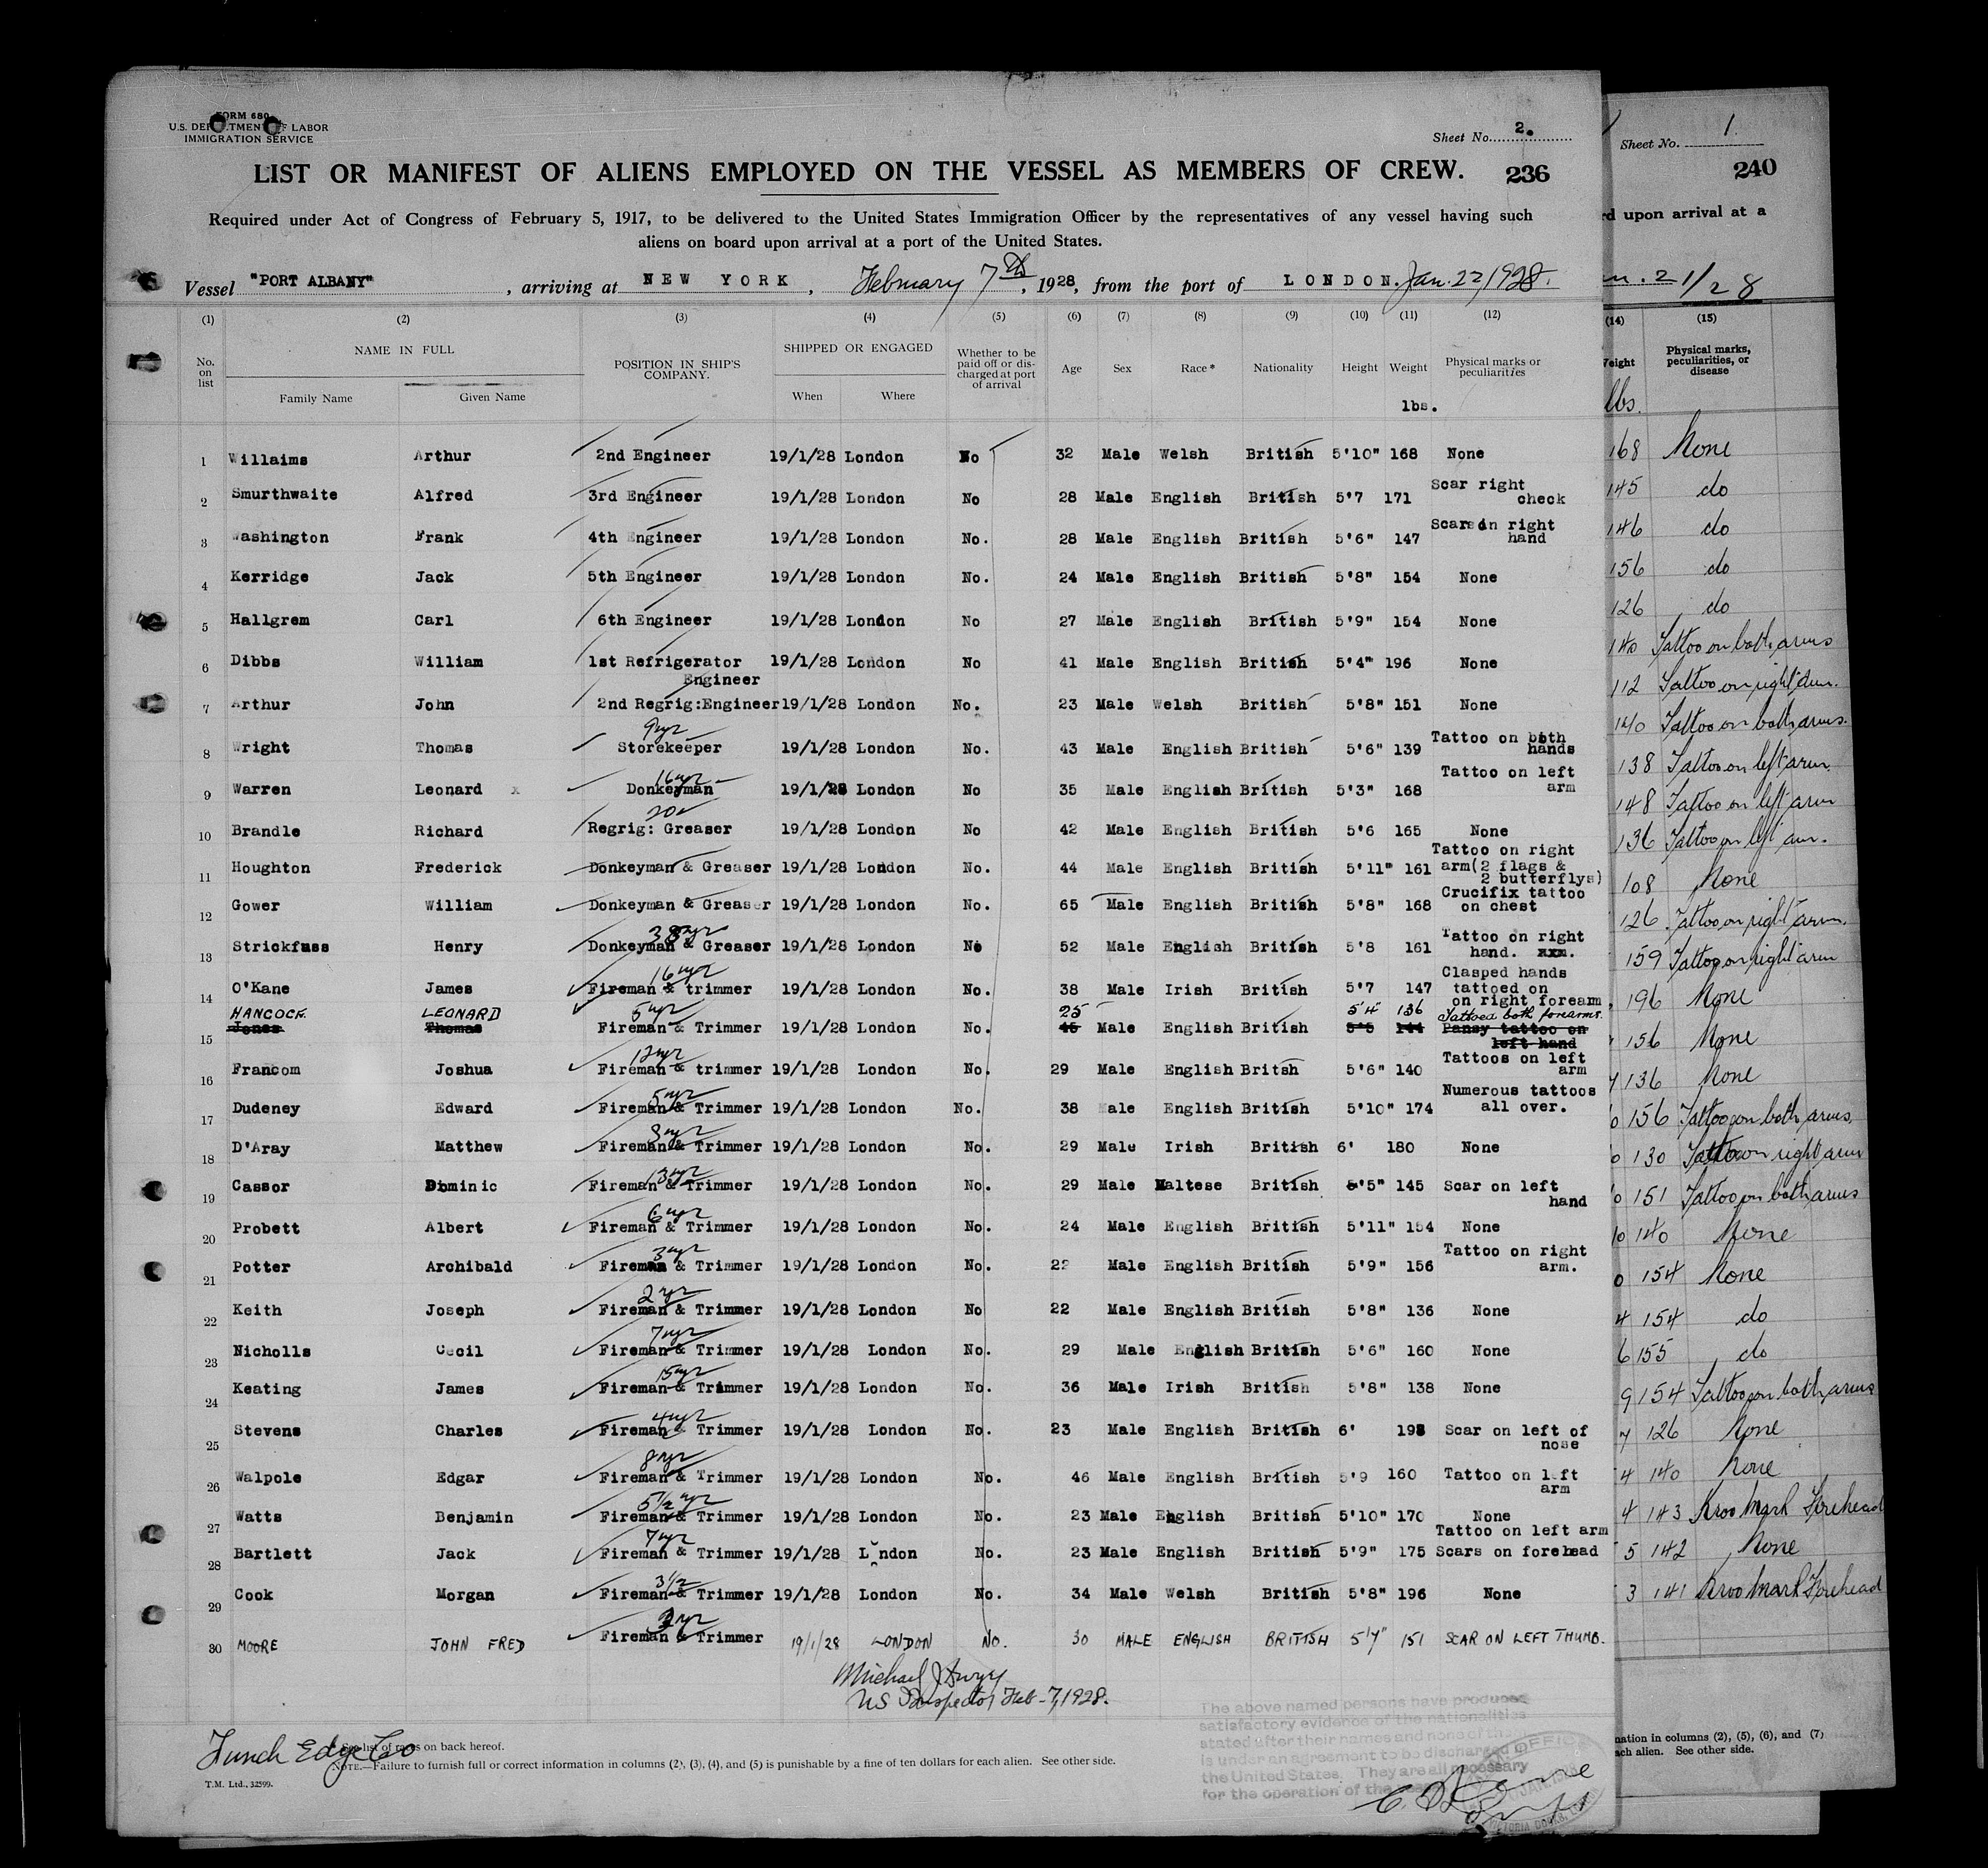 FORM 680
U.S. DEPARTMENT OF LABOR
IMMIGRATION SERVICE
Sheet No. 2.
LIST OR MANIFEST OF ALIENS EMPLOYED ON THE VESSEL AS MEMBERS OF CREW. 236
Required under Act of Congress of February 5, 1917, to be delivered to the United States Immigration Officer by the representatives of any vessel having such
aliens on board upon arrival at a port of the United States.
Vessel "PORT ALBANY", arriving at NEW YORK, February 7th, 1928, from the port of LONDON. Jan. 22, 1928.
(1) (2) (3) (4) (5) (6) (7) (8) (9) (10) (11) (12)
No. on list NAME IN FULL POSITION IN SHIP'S COMPANY. SHIPPED OR ENGAGED Whether to be paid off or discharged at port of arrival Age Sex Race* Nationality Height Weight Physical marks or peculiarities
Family Name Given Name When Where lbs.
1 Willaims Arthur 2nd Engineer 19/1/28 London No 32 Male Welsh British 5'10" 168 None
2 Smurthwaite Alfred 3rd Engineer 19/1/28 London No 28 Male English British 5'7 171 Scar right check
3 Washington Frank 4th Engineer 19/1/28 London No. 28 Male English British 5'6" 147 Scars in right hand
4 Kerridge Jack 5th Engineer 19/1/28 London No. 24 Male English British 5'8" 154 None
5 Hallgrem Carl 6th Engineer 19/1/28 London No 27 Male English British 5'9" 154 None
6 Dibbs William 1st Refrigerator Engineer 19/1/28 London No 41 Male English British 5'4" 196 None
7 Arthur John 2nd Regrig:Engineer 19/1/28 London No. 23 Male Welsh British 5'8" 151 None
8 Wright Thomas 9yr Storekeeper 19/1/28 London No. 43 Male English British 5'6" 139 Tattoo on both hands
9 Warren Leonard x 16yr Donkeyman 19/1/28 London No 35 Male English British 5'3" 168 Tattoo on left arm
10 Brandle Richard 20 Regrig: Greaser 19/1/28 London No 42 Male English British 5'6 165 None
11 Houghton Frederick Donkeyman & Greaser 19/1/28 London No. 44 Male English British 5'11" 161 Tattoo on right arm(2 flags & 2 butterflys)
12 Gower William Donkeyman & Greaser 19/1/28 London No. 65 Male English British 5'8" 168 Crucifix tattoo on chest
13 Strickfuss Henry 38yr Donkeyman & Greaser 19/1/28 London No 52 Male English British 5'8 161 Tattoo on right hand. xxm.
14 O'Kane James 16yr Fireman & trimmer 19/1/28 London No. 38 Male Irish British 5'7 147 Clasped hands tattoed on on right forearm
HANCOCK LEONARD 5yr 25 5'4" 136 Tattoed both forearms.
15 Jones Thomas Fireman & Trimmer 19/1/28 London No. 45 Male English British 5'5 144 Pansy tattoo on left hand
16 Francom Joshua 12yr Fireman & trimmer 19/1/28 London No. 29 Male English Britsh 5'6" 140 Tattoos on left arm
17 Dudeney Edward 5yr Fireman & Trimmer 19/1/28 London No. 38 Male English British 5'10" 174 Numerous tattoos all over.
18 D'Aray Matthew 8yr Fireman & Trimmer 19/1/28 London No. 29 Male Irish British 6' 180 None
19 Cassor Dominic 13yr Fireman & Trimmer 19/1/28 London No. 29 Male Maltese British 5'5" 145 Scar on left hand
20 Probett Albert 6yr Fireman & Trimmer 19/1/28 London No. 24 Male English British 5'11" 154 None
21 Potter Archibald 3yr Fireman & Trimmer 19/1/28 London No. 22 Male English British 5'9" 156 Tattoo on right arm.
22 Keith Joseph 2yr Fireman & Trimmer 19/1/28 London No 22 Male English British 5'8" 136 None
23 Nicholls Cecil 7yr Fireman & Trimmer 19/1/28 London No. 29 Male English British 5'6" 160 None
24 Keating James 15yr Fireman & Trimmer 19/1/28 London No. 36 Male Irish British 5'8" 138 None
25 Stevens Charles 4yr Fireman & Trimmer 19/1/28 London No. 23 Male English British 6' 198 Scar on left of nose
26 Walpole Edgar 8yr Fireman & Trimmer 19/1/28 London No. 46 Male English British 5'9 160 Tattoo on left arm
27 Watts Benjamin 5 1/2 yr Fireman & Trimmer 19/1/28 London No. 23 Male English British 5'10" 170 None
28 Bartlett Jack 7yr Fireman & Trimmer 19/1/28 London No. 23 Male English British 5'9" 175 Tattoo on left arm Scars on forehead
29 Cook Morgan 3 1/2 Fireman & Trimmer 19/1/28 London No. 34 Male Welsh British 5'8" 196 None
30 MOORE JOHN FRED Fireman & Trimmer 19/1/28 LONDON No. 30 MALE ENGLISH BRITISH 5'7" 151 SCAR ON LEFT THUMB.
Michael J
US Inspector Feb-7, 1928.
The above named persons have produced
satisfactory evidence of the nationalities
stated after their names and none of the
is under an agreement to be discharged
the United States. They are all necessary
for the operation of the
Funch Edye & Co
* See list of races on back hereof.
NOTE.—Failure to furnish full or correct information in columns (2), (3), (4), and (5) is punishable by a fine of ten dollars for each alien. See other side.
T.M. Ltd., 32599.
VICTORIA DOCKS
Sheet No. 1
240
rd upon arrival at a
n. 21/28
(14) (15)
Weight Physical marks, peculiarities, or disease
lbs.
168 None
145 do
146 do
156 do
126 do
140 Tattoo on both arms
112 Tattoo on right arm.
140 Tattoo on both arms.
138 Tattoo on left arm.
148 Tattoo on left arm
136 Tattoo on left arm.
108 None
126 Tattoo on right arm.
159 Tattoo on right arm
196 None
156 None
136 None
156 Tattoo on both arms.
130 Tattoo on right arm
151 Tattoo on both arms
10 140 None
154 None
4 154 do
6 155 do
9 154 Tattoo on both arms
7 126 None
4 140 None
4 143 Kroo Mark Forehead
5 142 None
3 141 Kroo Mark Forehead
mation in columns (2), (5), (6), and (7)
ach alien. See other side.